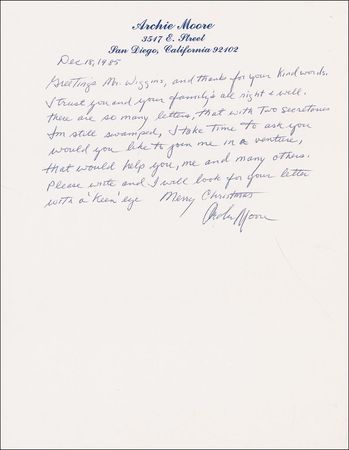 Archie Moore
3517 E. Street
San Diego, California 92102
Dec 18, 1985
Greeting's Mr. Wiggins, and thanks for your kind words.
I trust you and your family's all right & well.
there are so many letters, that with two secretaries
Im still swamped, I take time to ask you
would you like to join me in a venture,
that would help you, me and many others.
Please write and I will look for your letter
with a 'Keen' eye Merry Christmas
Archie Moore